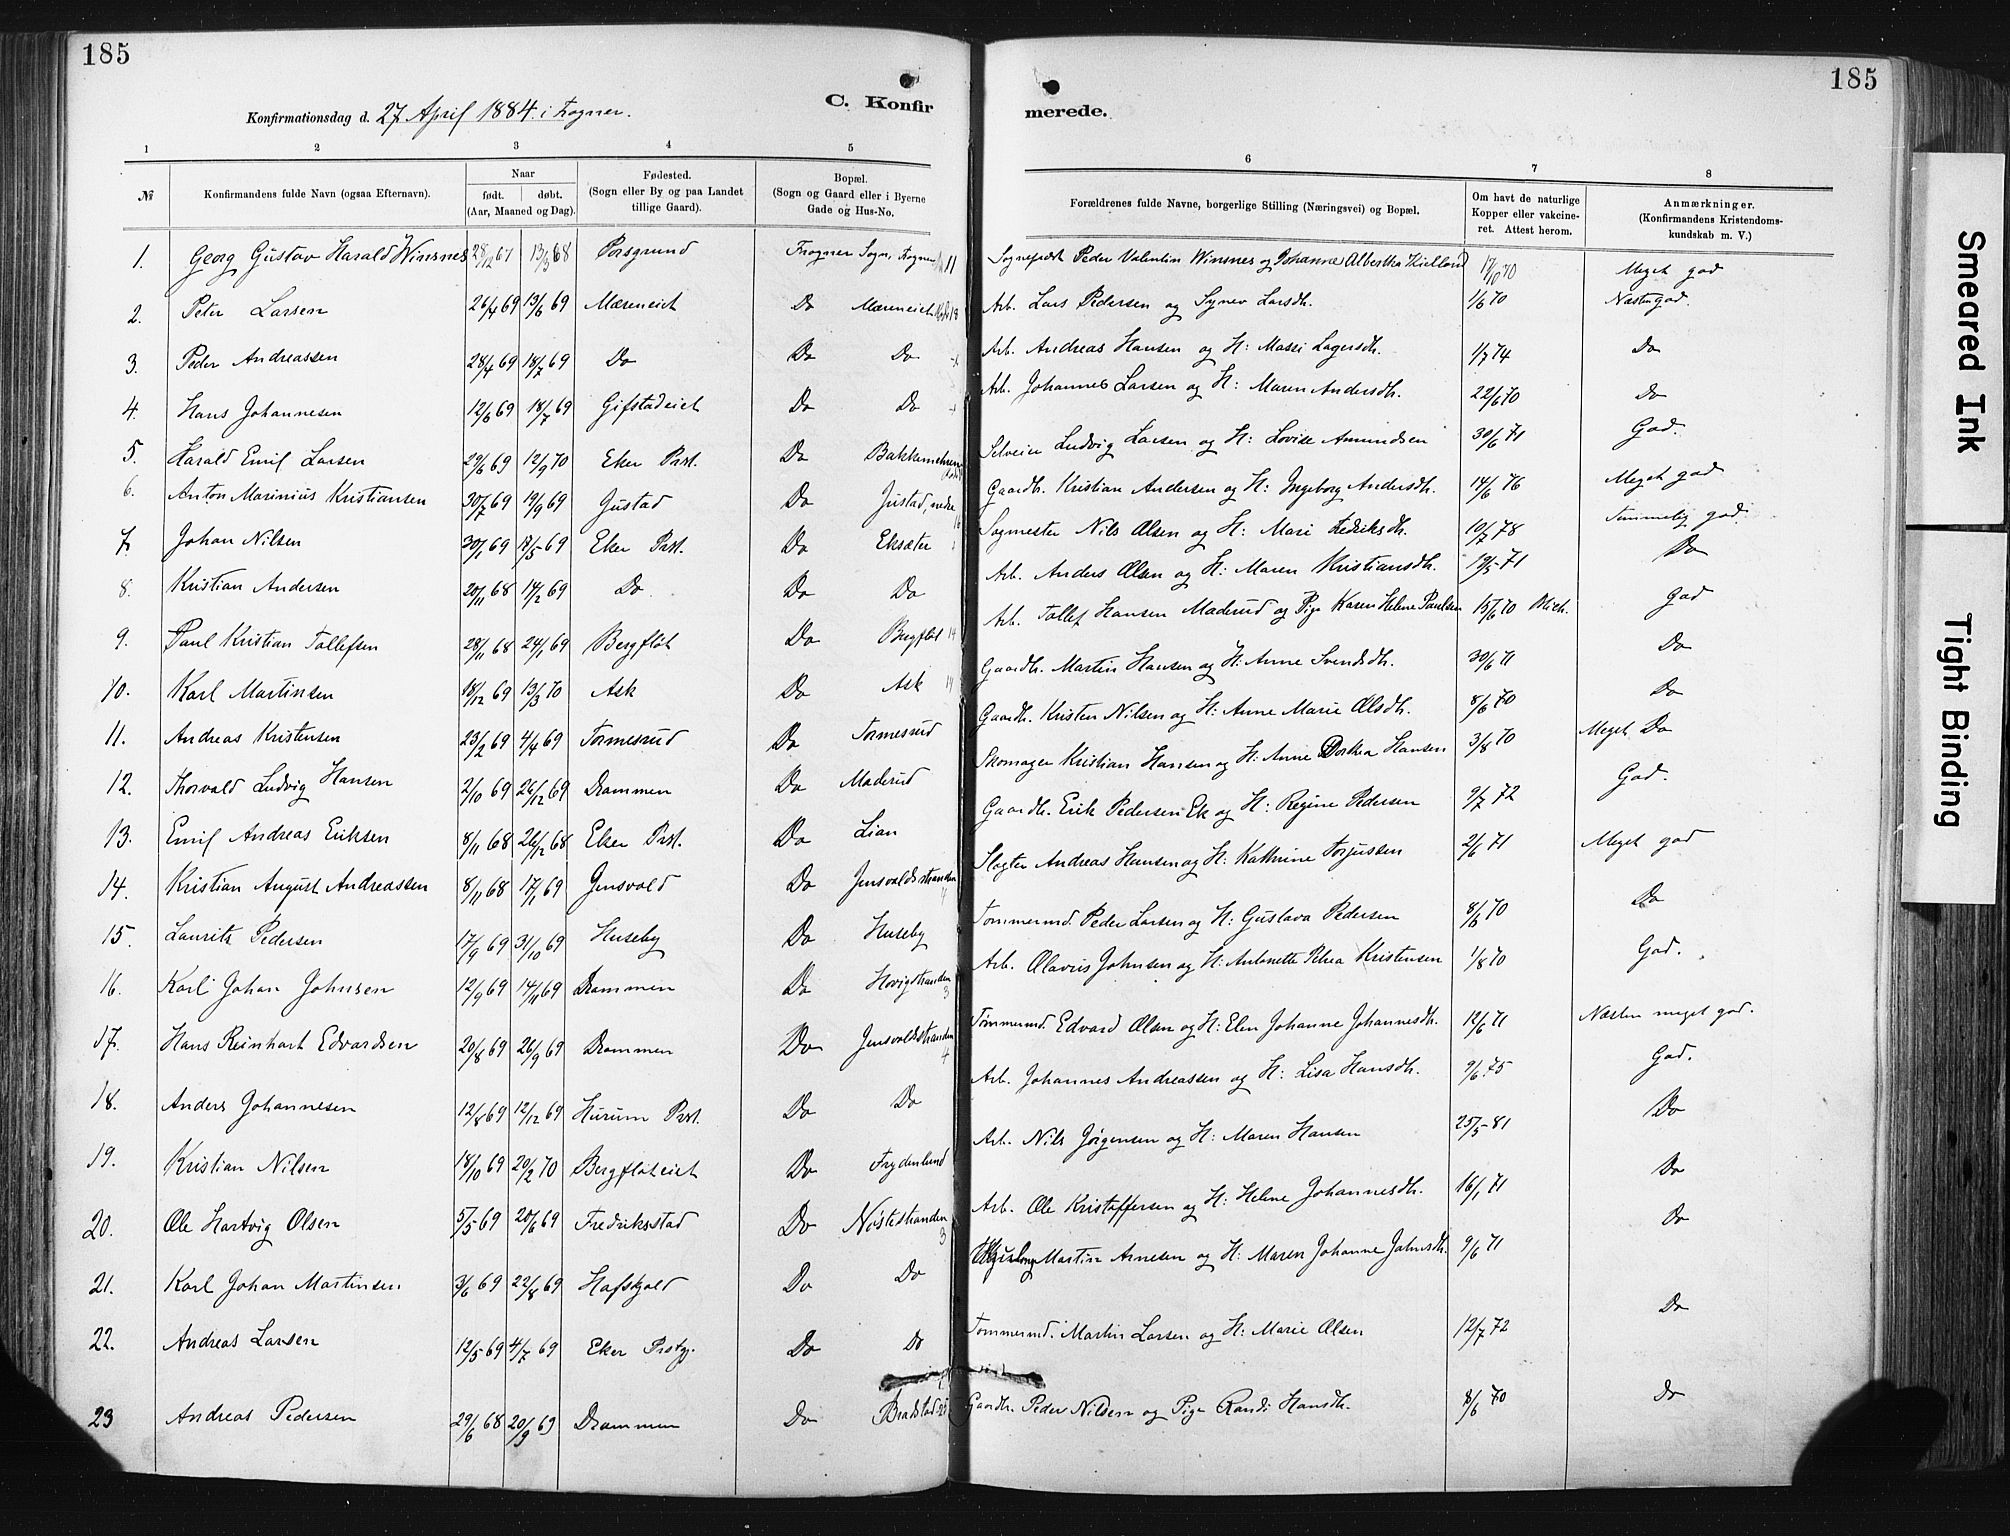 185
185
C. Konfir
merede.
Konfirmationsdag d. 27 April 1884. i Frogner.
1 2 3 4 5 6 7 8
№ Konfirmandens fulde Navn (ogsaa Efternavn). Naar født. døbt. (Aar, Maaned og Dag). Fødested. (Sogn eller By og paa Landet tillige Gaard). Bopæl. (Sogn og Gaard eller i Byerne Gade og Hus-No. Forældrenes fulde Navne, borgerlige Stilling (Næringsvei) og Bopæl. Om havt de naturlige Kopper eller vakcineret. Attest herom. Anmærkninger. (Konfirmandens Kristendomskundskab m. V.)
1. Georg Gustav Harald Winsnes 28/12 67 13/3 68 Porsgrund Frogner Sogn, Frogner 11 Sognepræst Peder Valentin Winsnes og Johanne Albertha Kielland 70 Meget god
2. Peter Larsen 26/4 69 13/6 69 Mæreneiet Do Mæreneiet Arb. Lars Pedersen og Synev Larsdh. 1/6 70 Næstengod.
3. Peder Andreassen 28/4 69 18/7 69 Do Do Do Arb. Andreas Hansen og H: Massi Lagersdh. 1/7 74 Do
4. Hans Johannesen 12/6 69 18/7 69 Gifstadeiet Do Do Arb. Johannes Larsen og H: Maren Andersdh. 22/6 70 Do
5. Harald Emil Larsen 29/6 69 12/9 70 Eker Prst. Do Bakkemehren Selveier Ludvig Larsen og H: Lovise Amundsen 30/6 71 God.
6. Anton Marinius Kristiansen 30/7 69 19/9 69 Gustad Do Justad, nedre 16 Gaardb. Kristian Andersen og H: Ingeborg Andersdh. 14/6 76 Meget god
7. Johan Nilsen 30/1 69 18/5 69 Eker Prst. Do Eksæter Sagmester Nils Olsen og H: Mari Fedriksdh. 10/7 78 Temmelig god.
8. Kristian Andersen 20/11 68 14/2 69 Do. Do Do Arb. Anders Olsen og H: Maren Kristiansdh. 19/5 71 Do
9. Paul Kristian Tollefsen 28/11 68 24/1 69 Bergfløt Do Bergfløt 14 Arb. Tollef Hansen Maderud og Pige Karen Helene Paulsen 15/6 70 God
10. Karl Martinsen 18/12 69 13/3 70 Ask Do Ask Gaardb. Martin Hansen og H: Anne Svendsdh. 30/6 71 Do
11. Andreas Kristensen 23/2 69 4/4 69 Tormesrud Do Tormesrud Gaardb. Kristen Nilsen og H: Anne Marie Olsdh. 8/6 70 Do
12. Thorvald Ludvig Hansen 2/10 69 26/12 69 Drammen Do Maderud Skomager Kristian Hansen og H: Anne Dorthea Hansen 3/8 70 Meget Do
13. Emil Andreas Eriksen 8/11 68 26/12 68 Eker Prst. Do Lian Gaardb. Erik Pedersen Ek og H: Regine Pedersen 9/7 72 God.
14. Kristian August Andreassen 8/11 68 17/1 69 Gensvold Do Jensvoldstranden 4 Slagter Andreas Hansen og H: Kathrine Torjussen 2/6 71 Meget god
15. Lauritz Pedersen 17/9 69 31/10 69 Huseby Do Huseby Tømmermd. Peder Larsen og H: Gustava Pedersen 8/6 70 Do
16. Karl Johan Johnsen 12/9 69 14/11 69 Drammen Do Hovigstranden 3 Arb. Olavus Johnsen og H: Antonette Petrea Kristensen 1/8 70 God.
17. Hans Reinhart Edvardsen 20/8 69 26/9 69 Drammen Do Jensvoldstranden 4 Tømmermd. Edvard Olsen og H: Elen Johanne Johannesdh. 12/6 71 Næsten meget god.
18. Anders Johannesen 12/8 69 12/12 69 Hurum Prst. Do Do Arb. Johannes Andreassen og H: Lisa Hansdh. 9/6 75 God.
19. Kristian Nilsen 18/10 69 20/2 70 Bergfløteiet Do Frydenlund Arb. Nils Jørgensen og H: Maren Hansen 25/5 81 Do
20. Ole Hartvig Olsen 5/5 69 20/6 69 Fredriksstad Do Nøstestranden 3 Arb. Ole Kristoffersen og H: Helene Johannesdh. 16/1 71 Do
21. Karl Johan Martinsen 3/6 69 22/8 69 Hafskjold Do Do Martin Arnesen og H: Maren Johanne Johnsdh. 9/6 71 Do
22. Andreas Larsen 12/5 69 4/7 69 Eker Prstgj. Do Do Tømmermd. Martin Larsen og H: Marie Olsen 12/7 72 Do
23 Andreas Pedersen 29/6 68 20/9 69 Drammen Do Gaardb. Peder Nilsen og Pige Randi Hansdh. 8/6 70 Do
Smeared Ink
Tight Binding